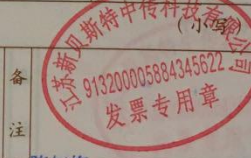 (小写)
江苏新贝斯特中传科技有限
913200005884345622
发票专用章
备
注